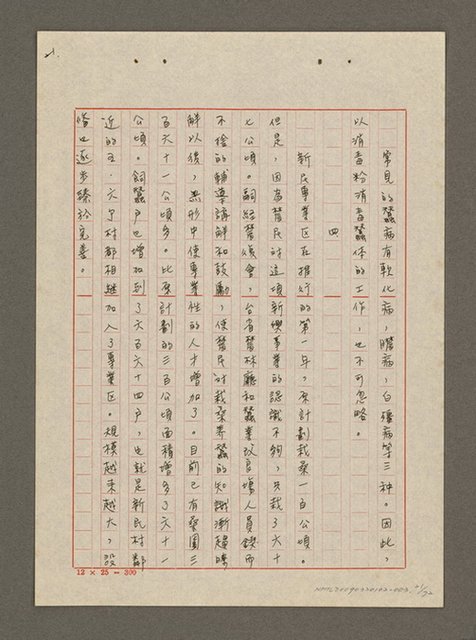 21.
常見的蠶病有軟化病，膿病，白殭病等三種。因此，
以消毒粉消毒蠶体的工作，也不可忽略。
四
新民專業区在推行的第一年，原計劃栽桑一百公頃。
但是，因為蠶民對這項新興事業的認識不夠，只栽了六十
七公頃。嗣經蠶 ，台省農林廳和蠶業改良場人員鍥而
不捨的輔導講解和鼓勵，使蠶民對栽桑养蠶的知識漸趨瞭
解以後，無形中使專業性的人才增加了。目前已有桑園三
百六十一公頃多。比原計劃的三百公頃面積增多了六十一
公頃。飼蠶户也增加到了六百六十四户，也就是新民村鄰
近的五、六个村都相繼加入了專業区。規模越來越大，設
備也逐步臻於完善。
12 × 25 = 300
21/22